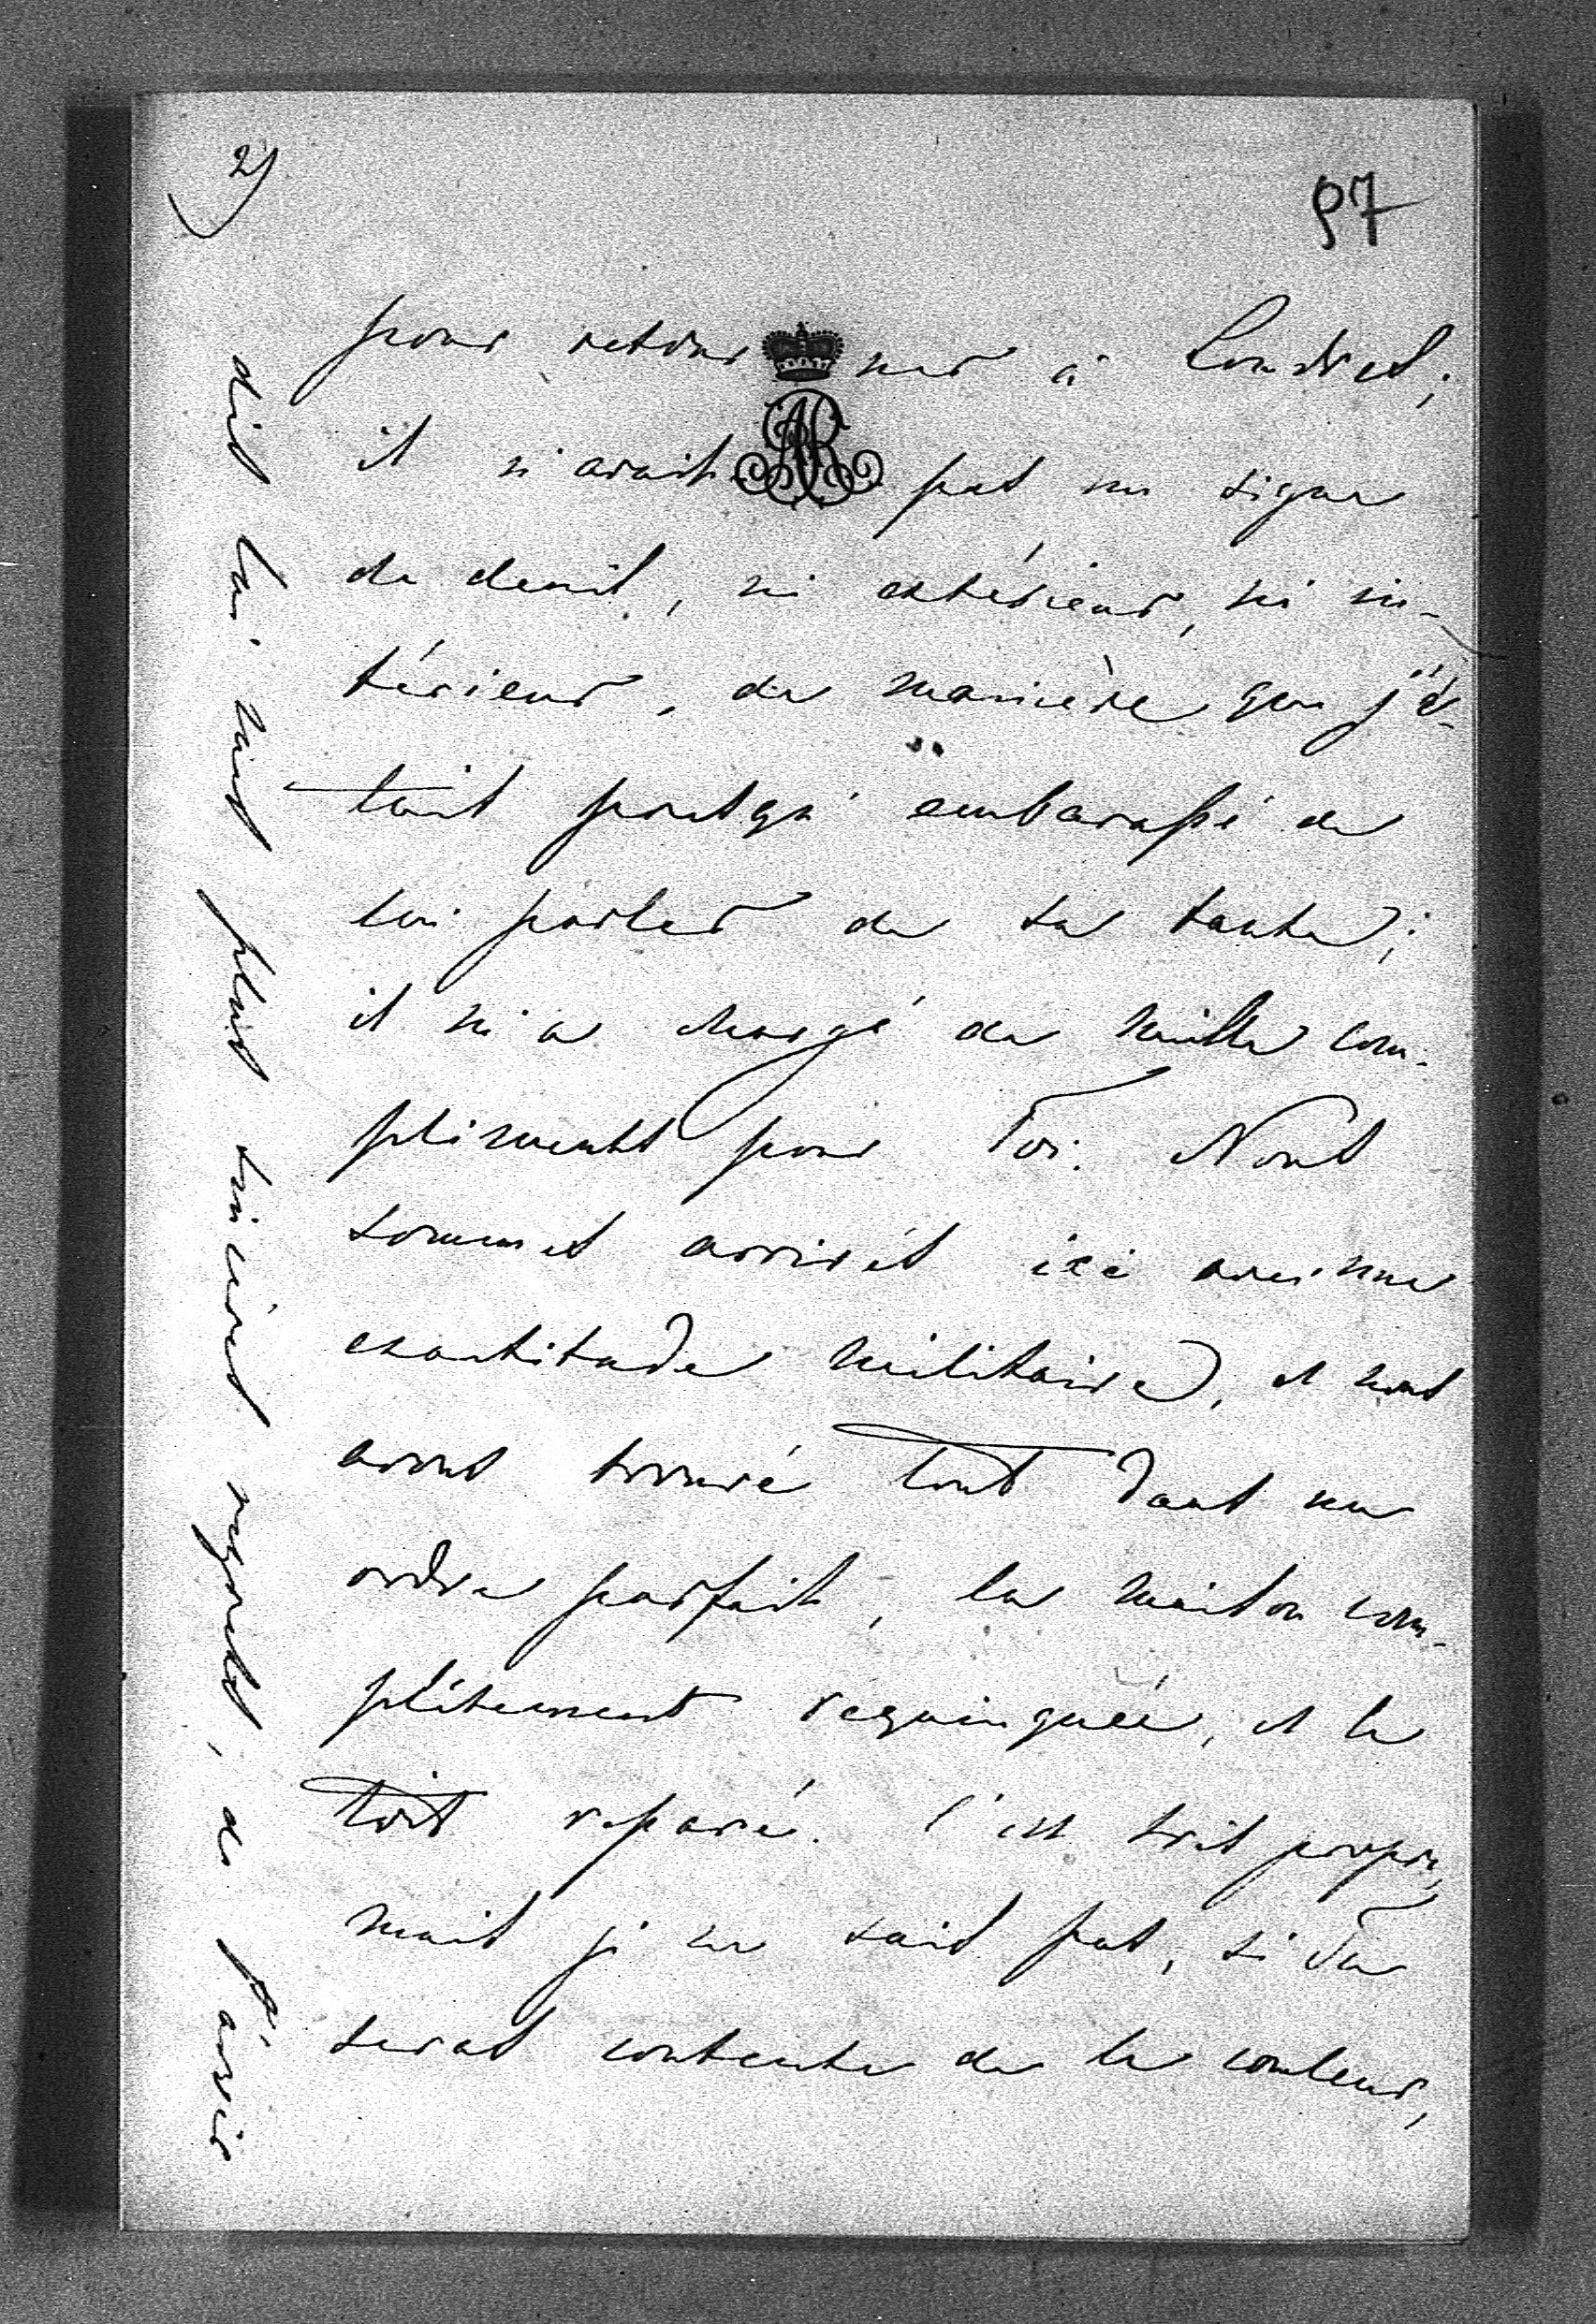 2)
97
pour retourner à Londres;
il n'avait pas un signe
de deuil, ni extérieur, ni in-
térieur, de manière que j'é-
tais presqu' embarassé de
lui parler de sa tante;
il m'a chargé de mille com-
pliments pour Toi. Nous
sommes arrivés ici avec une
exactitude militaire, et nous
avons trouvé tout dans un
ordre parfait, la maison com-
plètement requinquée, et le
toit reparé. C'est très propre,
mais je ne sais pas, si Tu
seras contente de la couleur,
dis lui mes plus sincères regrets, de l'avoir